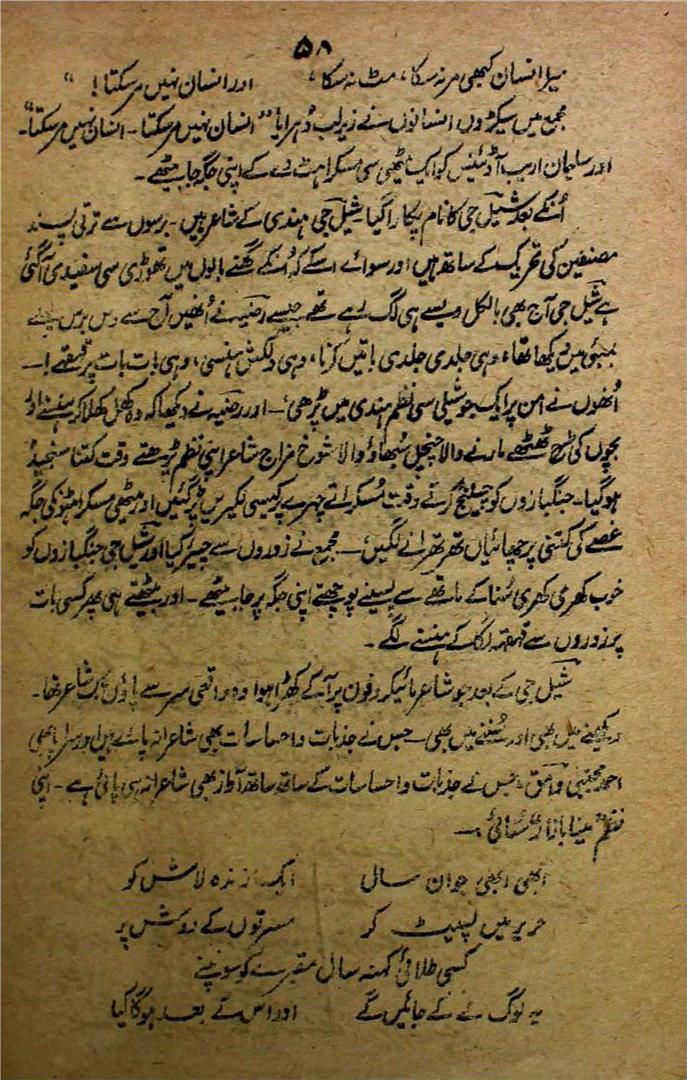 ۵۸
میرا انسان کبھی مر نہ سکا، مٹ نہ سکا، اور انسان نہیں مر سکتا! "
مجمع میں سیکڑوں انسانوں نے زیرِلب دُہرایا "انسان نہیں مر سکتا۔ انسان نہیں مر سکتا"۔
اور سلیمان اریب آڈینس کو ایک میٹھی سی مسکراہٹ دے کے اپنی جگہ جا بیٹھے۔
اُنکے بعد شیل جی کا نام پکارا گیا شیل جی ہندی کے شاعر ہیں۔ برسوں سے ترقی پسند
مصنفین کی تحریک کے ساتھ ہیں اور سوائے اسکے کہ اُنکے گھنے بالوں میں تھوڑی سی سفیدی آ گئی
ہے شیل جی آج بھی بالکل ویسے ہی لگ رہے تھے جیسے رضیہ نے اُنھیں آج سے دس برس پہلے
بمبئی میں دیکھا تھا، وہی جلدی جلدی باتیں کرنا، وہی دلکش ہنسی، وہی بات بات پر قہقہے!۔
اُنھوں نے امن پر ایک جوشیلی سی نظم ہندی میں پڑھی۔ اور رضیہ نے دیکھا کہ وہ کھل کھلا کر ہنسنے والا
بچوں کی طرح ٹھٹھے مارنے والا چنچل سُبھاؤ والا شوخ مزاج شاعر اپنی نظم پڑھتے وقت کتنا سنجیدہ
ہو گیا۔ جنگبازوں کو چیلنج کرتے وقت مُسکراتے چہرے پر کیسی لکیریں پڑ گئیں اور میٹھی مسکراہٹوں کی جگہ
غصے کی کتنی پرچھائیاں تھرتھرانے لگیں۔ مجمع نے زوروں سے چیئر کیا اور شیل جی جنگبازوں کو
خوب کھری کھری سُنا کے ماتھے سے پسینے پوچھتے اپنی جگہ پر جا بیٹھے۔ اور بیٹھتے ہی پھر کسی بات
پر زوروں سے قہقہہ لگا کے ہنسنے لگے۔
شیل جی کے بعد جو شاعر مائیکروفون پر آ کے کھڑا ہوا وہ واقعی سر سے پاؤں تک شاعر تھا۔
دیکھنے میں بھی اور سُننے میں بھی۔ جس نے جذبات و احساسات بھی شاعرانہ پائے ہیں اور سراپا بھی
احمد مجتبیٰ وامق، جس نے جذبات و احساسات کے ساتھ ساتھ آواز بھی شاعرانہ ہی پائی ہے۔ اپنی
نظم "مینا بازار" سُنائی۔
ابھی ابھی جوان سال ایک زندہ لاش کو
حریر میں لپیٹ کر مسرتوں کے دوش پر
کسی طلائی کہنہ سال مقبرے کو سونپنے
یہ لوگ لے کے جائیں گے اور اس کے بعد ہوگا کیا